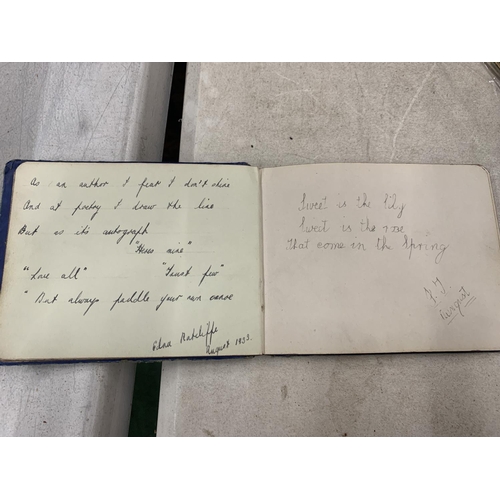 As an author I fear I don't shine
And at poetry I draw the line
But as its autograph
"Heres mine"
"Love all" "Trust few"
"But always paddle your own canoe
Edna Ratcliffe
August 1933.
Sweet is the lily
Sweet is the rose
That come in the Spring
August